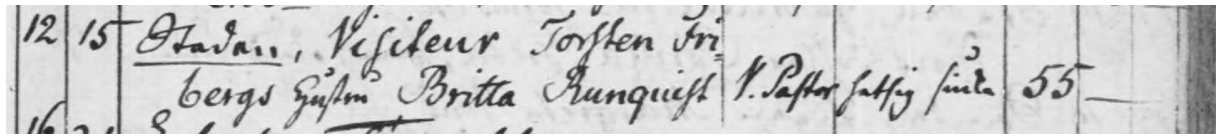 12 15 Staden, Visiteur Torsten Fri=
bergs Hustru Britta Runquist V. Pastor hetsig siuka 55 —